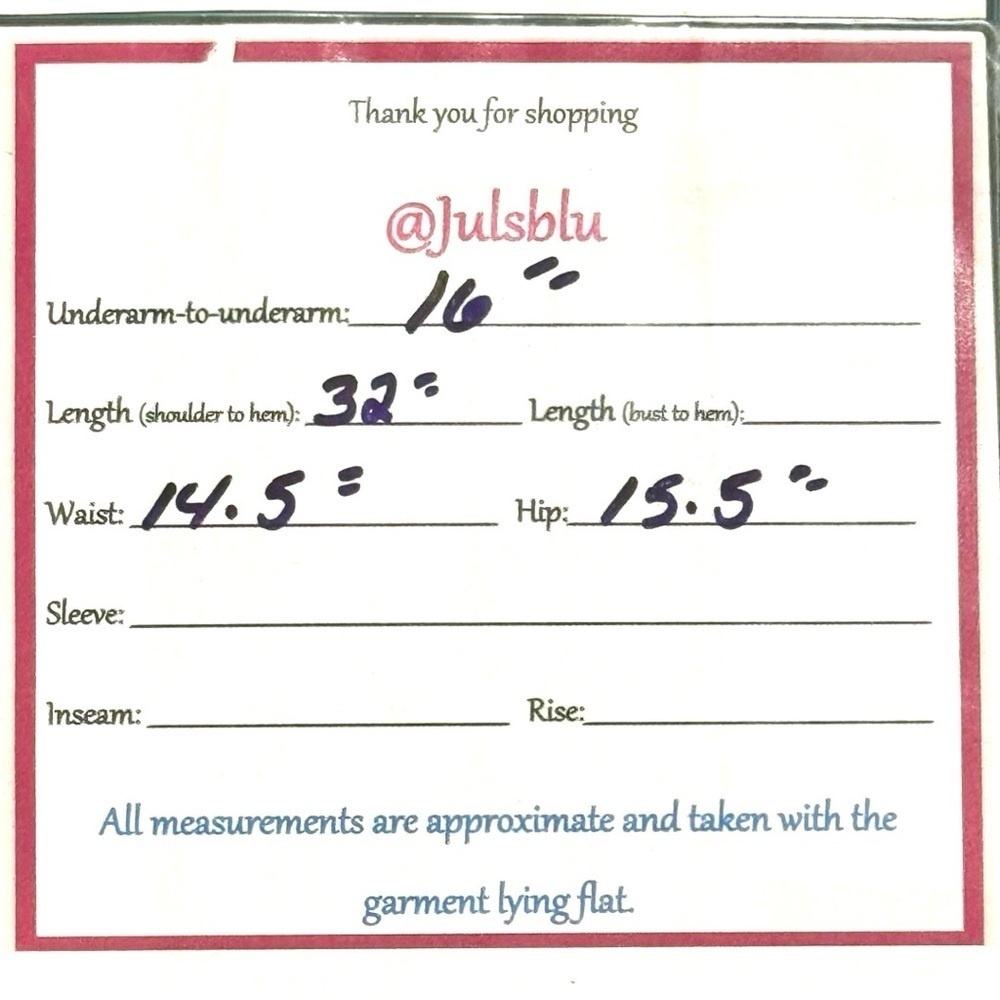 Thank you for shopping
@Julsblu
Underarm-to-underarm: 16"
Length (shoulder to hem): 32" Length (bust to hem):
Waist: 14.5" Hip: 15.5"
Sleeve:
Inseam: Rise:
All measurements are approximate and taken with the
garment lying flat.